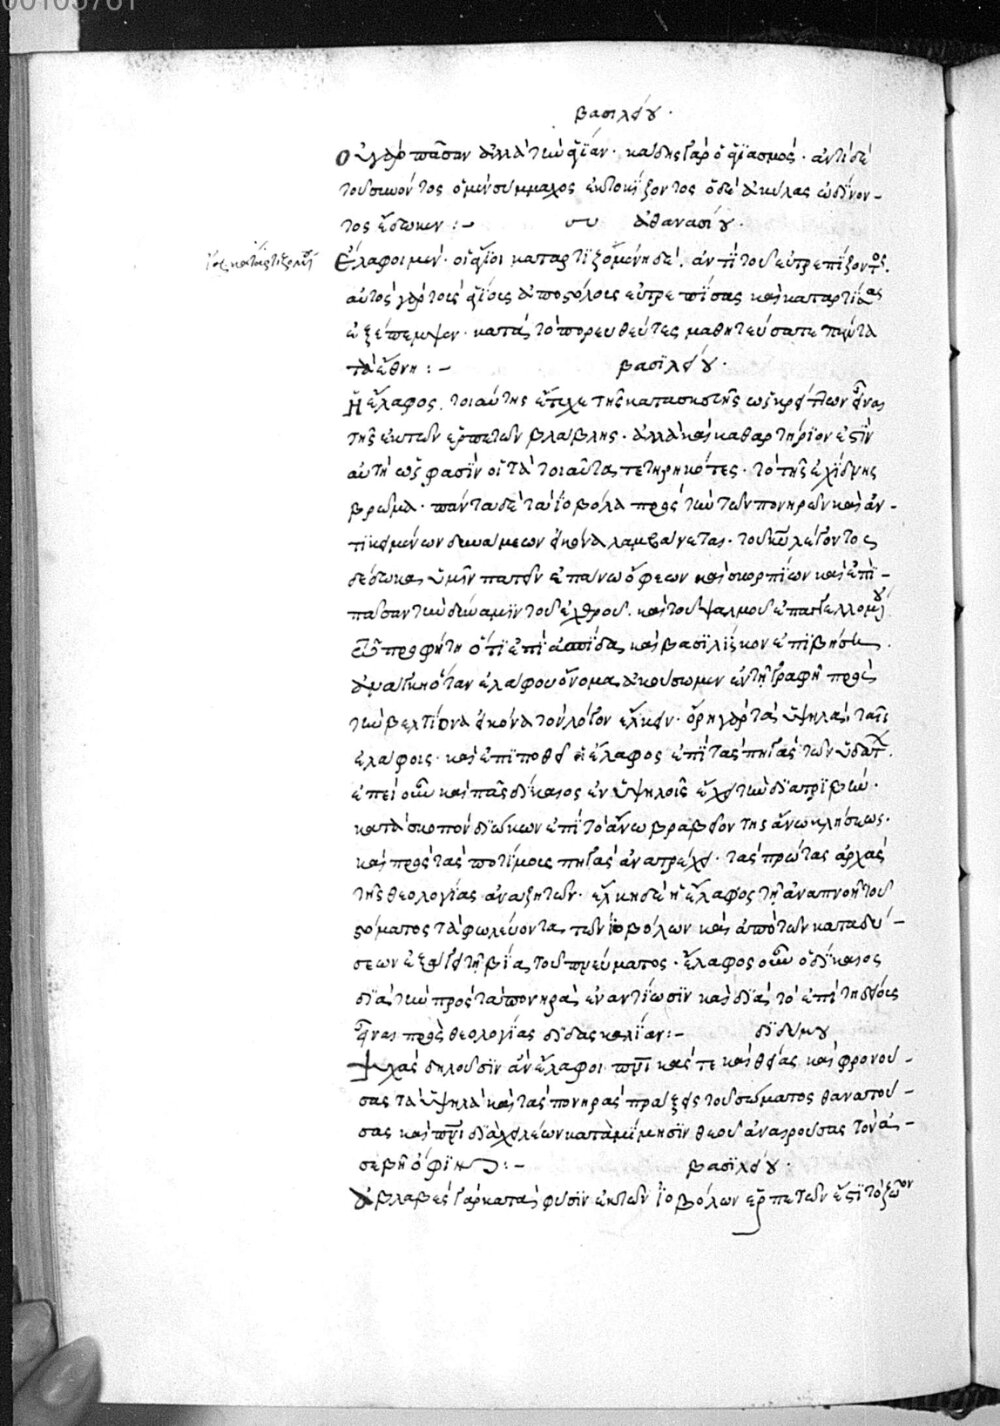 00105761
βασιλείου.
οὐ γὰρ πᾶσαν ἀλλὰ τὴν ἁγίαν. κάδης γὰρ ὁ ἁγιασμός. ἀντὶ δὲ
τοῦ σείοντος ὁ μὲν σύμμαχος ἐκτοκίζοντος ὁ δὲ ἀκύλας ὠδίνον-
τος ἔδωκεν :- ἀθανασίου.
Ἔλαφοι μὲν. οἱ ἅγιοι καταρτιζομένη δὲ. ἀντὶ τοῦ εὐτρεπίζοντος.
αὐτὸς γὰρ τοὺς ἁγίους ἀποστόλους εὐτρεπίσας καὶ καταρτίσας
ἐξέπεμψεν. κατὰ τὸ πορευθέντες μαθητεύσατε πάντα
τὰ ἔθνη :- βασιλείου.
Ἡ ἔλαφος. τοιαύτης ἔτυχε τῆς κατασκευῆς ὡς κρείττων εἶναι
τῆς ἐκ τῶν ἑρπετῶν βλάβης. ἀλλὰ καὶ καθαρτήριον ἐστὶν
αὐτῇ ὥς φασιν οἱ τὰ τοιαῦτα τετηρηκότες. τὸ τῆς ἐχίδνης
βρῶμα. πάντα δὲ τὰ ἰοβόλα πρὸς τὴν τῶν πονηρῶν καὶ ἀν-
τικειμένων δυνάμεων εἰκόνα λαμβάνεται. τοῦ κυρίου λέγοντος
δέδωκα ὑμῖν πατεῖν ἐπάνω ὄφεων καὶ σκορπίων καὶ ἐπὶ
πᾶσαν τὴν δύναμιν τοῦ ἐχθροῦ. καὶ τοῦ ψαλμοῦ ἐπαγγελλομένου
τῷ προφήτη ὅτι ἐπὶ ἀσπίδα καὶ βασιλίσκον ἐπιβήσει.
ἀνάγκη ὅταν ἐλάφου ὄνομα ἀκούσωμεν ἐν τῇ γραφῇ πρὸς
τὴν βελτίονα εἰκόνα τὸν λόγον ἕλκειν. ὄρη γὰρ τὰ ὑψηλὰ ταῖς
ἐλάφοις. καὶ ἐπιποθεῖ ἡ ἔλαφος ἐπὶ τὰς πηγὰς τῶν ὑδάτων.
ἐπεὶ οὖν καὶ πᾶς δίκαιος ἐν ὑψηλοῖς ἔχει τὴν διατριβὴν.
κατὰ σκοπὸν διώκων ἐπὶ τὸ ἄνω βραβεῖον τῆς ἄνω κλήσεως.
καὶ πρὸς τὰς ποτίμους πηγὰς ἀνατρέχει. τὰς πρώτας ἀρχὰς
τῆς θεολογίας ἀναζητῶν. ἕλκει δὲ ἡ ἔλαφος τῇ ἀναπνοῇ τοῦ
στόματος τὰ φωλεύοντα τῶν ἰοβόλων καὶ ἀπὸ τῶν καταδύ-
σεων ἐξάγει τῇ βίᾳ τοῦ πνεύματος. ἔλαφος οὖν ὁ δίκαιος
διὰ τὴν πρὸς τὰ πονηρὰ ἐναντίωσιν καὶ διὰ τὸ ἐπιτηδείως
εἶναι πρὸς θεολογίας διδασκαλίαν :- διδύμου
Ψυχὰς δηλοῦσιν ἂν ἔλαφοι πνευματικάς τε καὶ θείας καὶ φρονού-
σας τὰ ὑψηλὰ καὶ τὰς πονηρὰς πράξεις τοῦ σώματος θανατού-
σας καὶ πνεύματι διαχελεύων κατὰ μίμησιν θεοῦ ἀναιρούσας τὸν ἀ-
σεβῆ ὄφιν :- βασιλείου.
Ἀβλαβὲς γὰρ κατὰ φύσιν ἐκ τῶν ἰοβόλων ἑρπετῶν ἐστὶ τὸ ζῶον